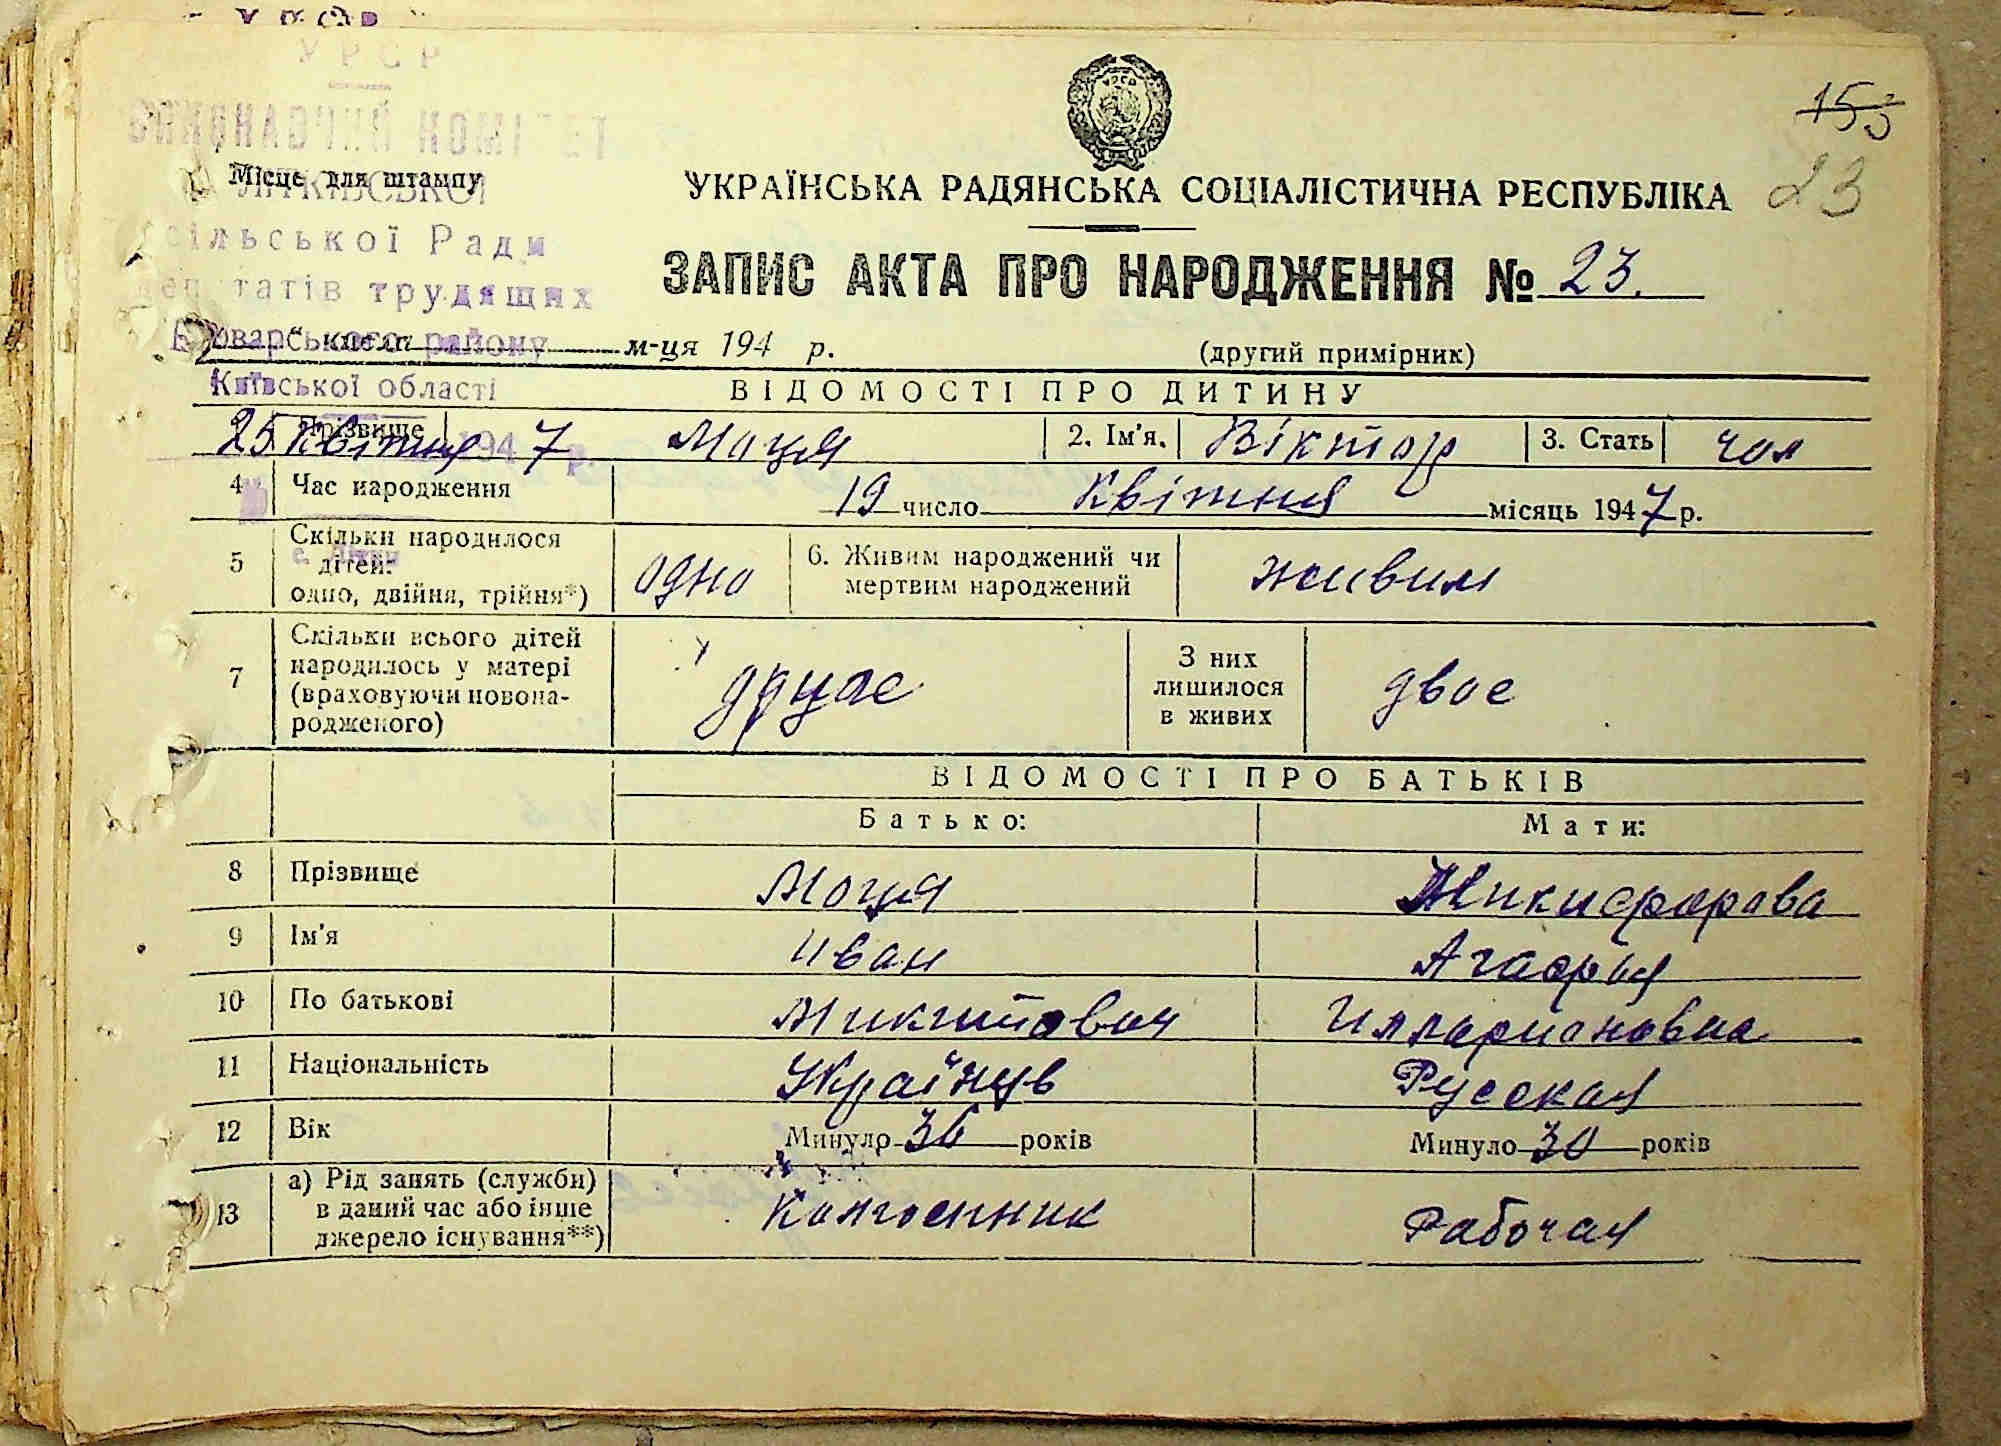 УРСР
ВИКОНАВЧИЙ КОМІТЕТ
155
23
Місце для штампу
ЛІТКІВСЬКОЇ
УКРАЇНСЬКА РАДЯНСЬКА СОЦІАЛІСТИЧНА РЕСПУБЛІКА
сільської Ради
депутатів трудящих
ЗАПИС АКТА ПРО НАРОДЖЕННЯ № 23.
Броварського району
м-ця 194 р.
(другий примірник)
Київської області
ВІДОМОСТІ ПРО ДИТИНУ
25 Квітня 1947 р.
1 Прізвище Моця 2. Ім'я. Віктор 3. Стать чол
4 Час народження 19 число Квітня місяць 1947 р.
с. Літки
5 Скільки народилося
дітей:
одно, двійня, трійня*) одно
6. Живим народжений чи
мертвим народжений живим
7 Скільки всього дітей
народилось у матері
(враховуючи новона-
родженого) друге
З них
лишилося
в живих двоє
ВІДОМОСТІ ПРО БАТЬКІВ
Батько: Мати:
8 Прізвище Моця Никифорова
9 Ім'я Иван Агафия
10 По батькові Микитович Илларионовна
11 Національність Українць Русская
12 Вік Минуло 36 років Минуло 30 років
13 а) Рід занять (служби)
в даний час або інше
джерело існування**) Колгоспник Рабочая